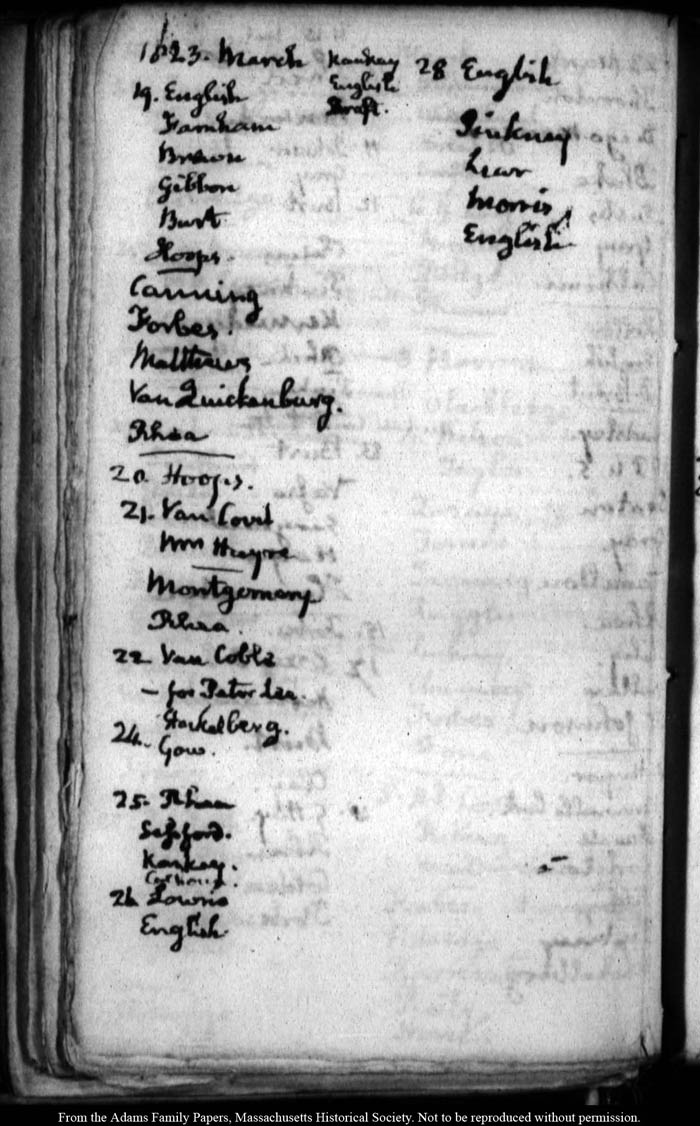 1823. March
19. English
Farnham
Brown
Gibbon
Burt
Hoops.
Canning
Forbes.
Matthews
Van Quickenburg.
Rhea
20. Hoops.
21. Van
Wm
Montgomery
Rhea.
22. Van Coble
— for Peter Lea.
Stackelberg.
24. Gow.
25. Rhea
Sessford.
Kankey.
26 Lowrie
English
Kankey
English
Draft.
28 English
Pinkney
Lear
Morris
English
From the Adams Family Papers, Massachusetts Historical Society. Not to be reproduced without permission.